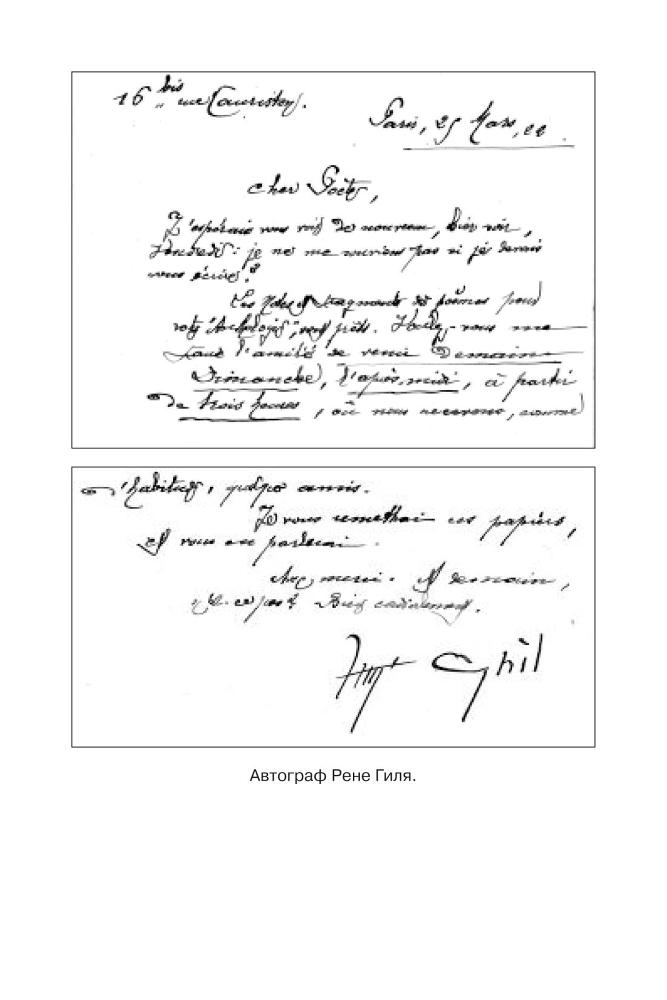 16 bis rue Lauriston.
Paris, 25 Mars, 22
cher Poète,
J'espérais vous voir de nouveau, hier soir,
Vendredi: je ne me souviens pas si je devais
vous écrire?
Les Notes et fragments de poèmes pour
votre Anthologie, sont prêts. Voulez-vous me
faire l'amitié de venir Demain
Dimanche, l'après-midi, à partir
de trois heures, où nous recevons, comme
d'habitude, quelques amis.
Je vous remettrai ces papiers,
et vous en parlerai.
Avec merci. A demain,
n'est-ce pas? Bien cordialement.
Ghil
Автограф Рене Гиля.